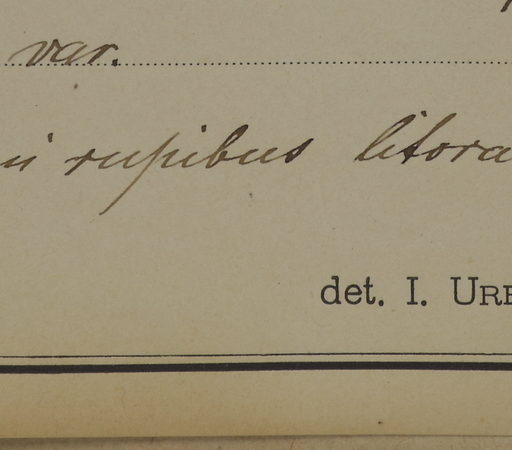 var.
in rupibus litora
det. I. URB